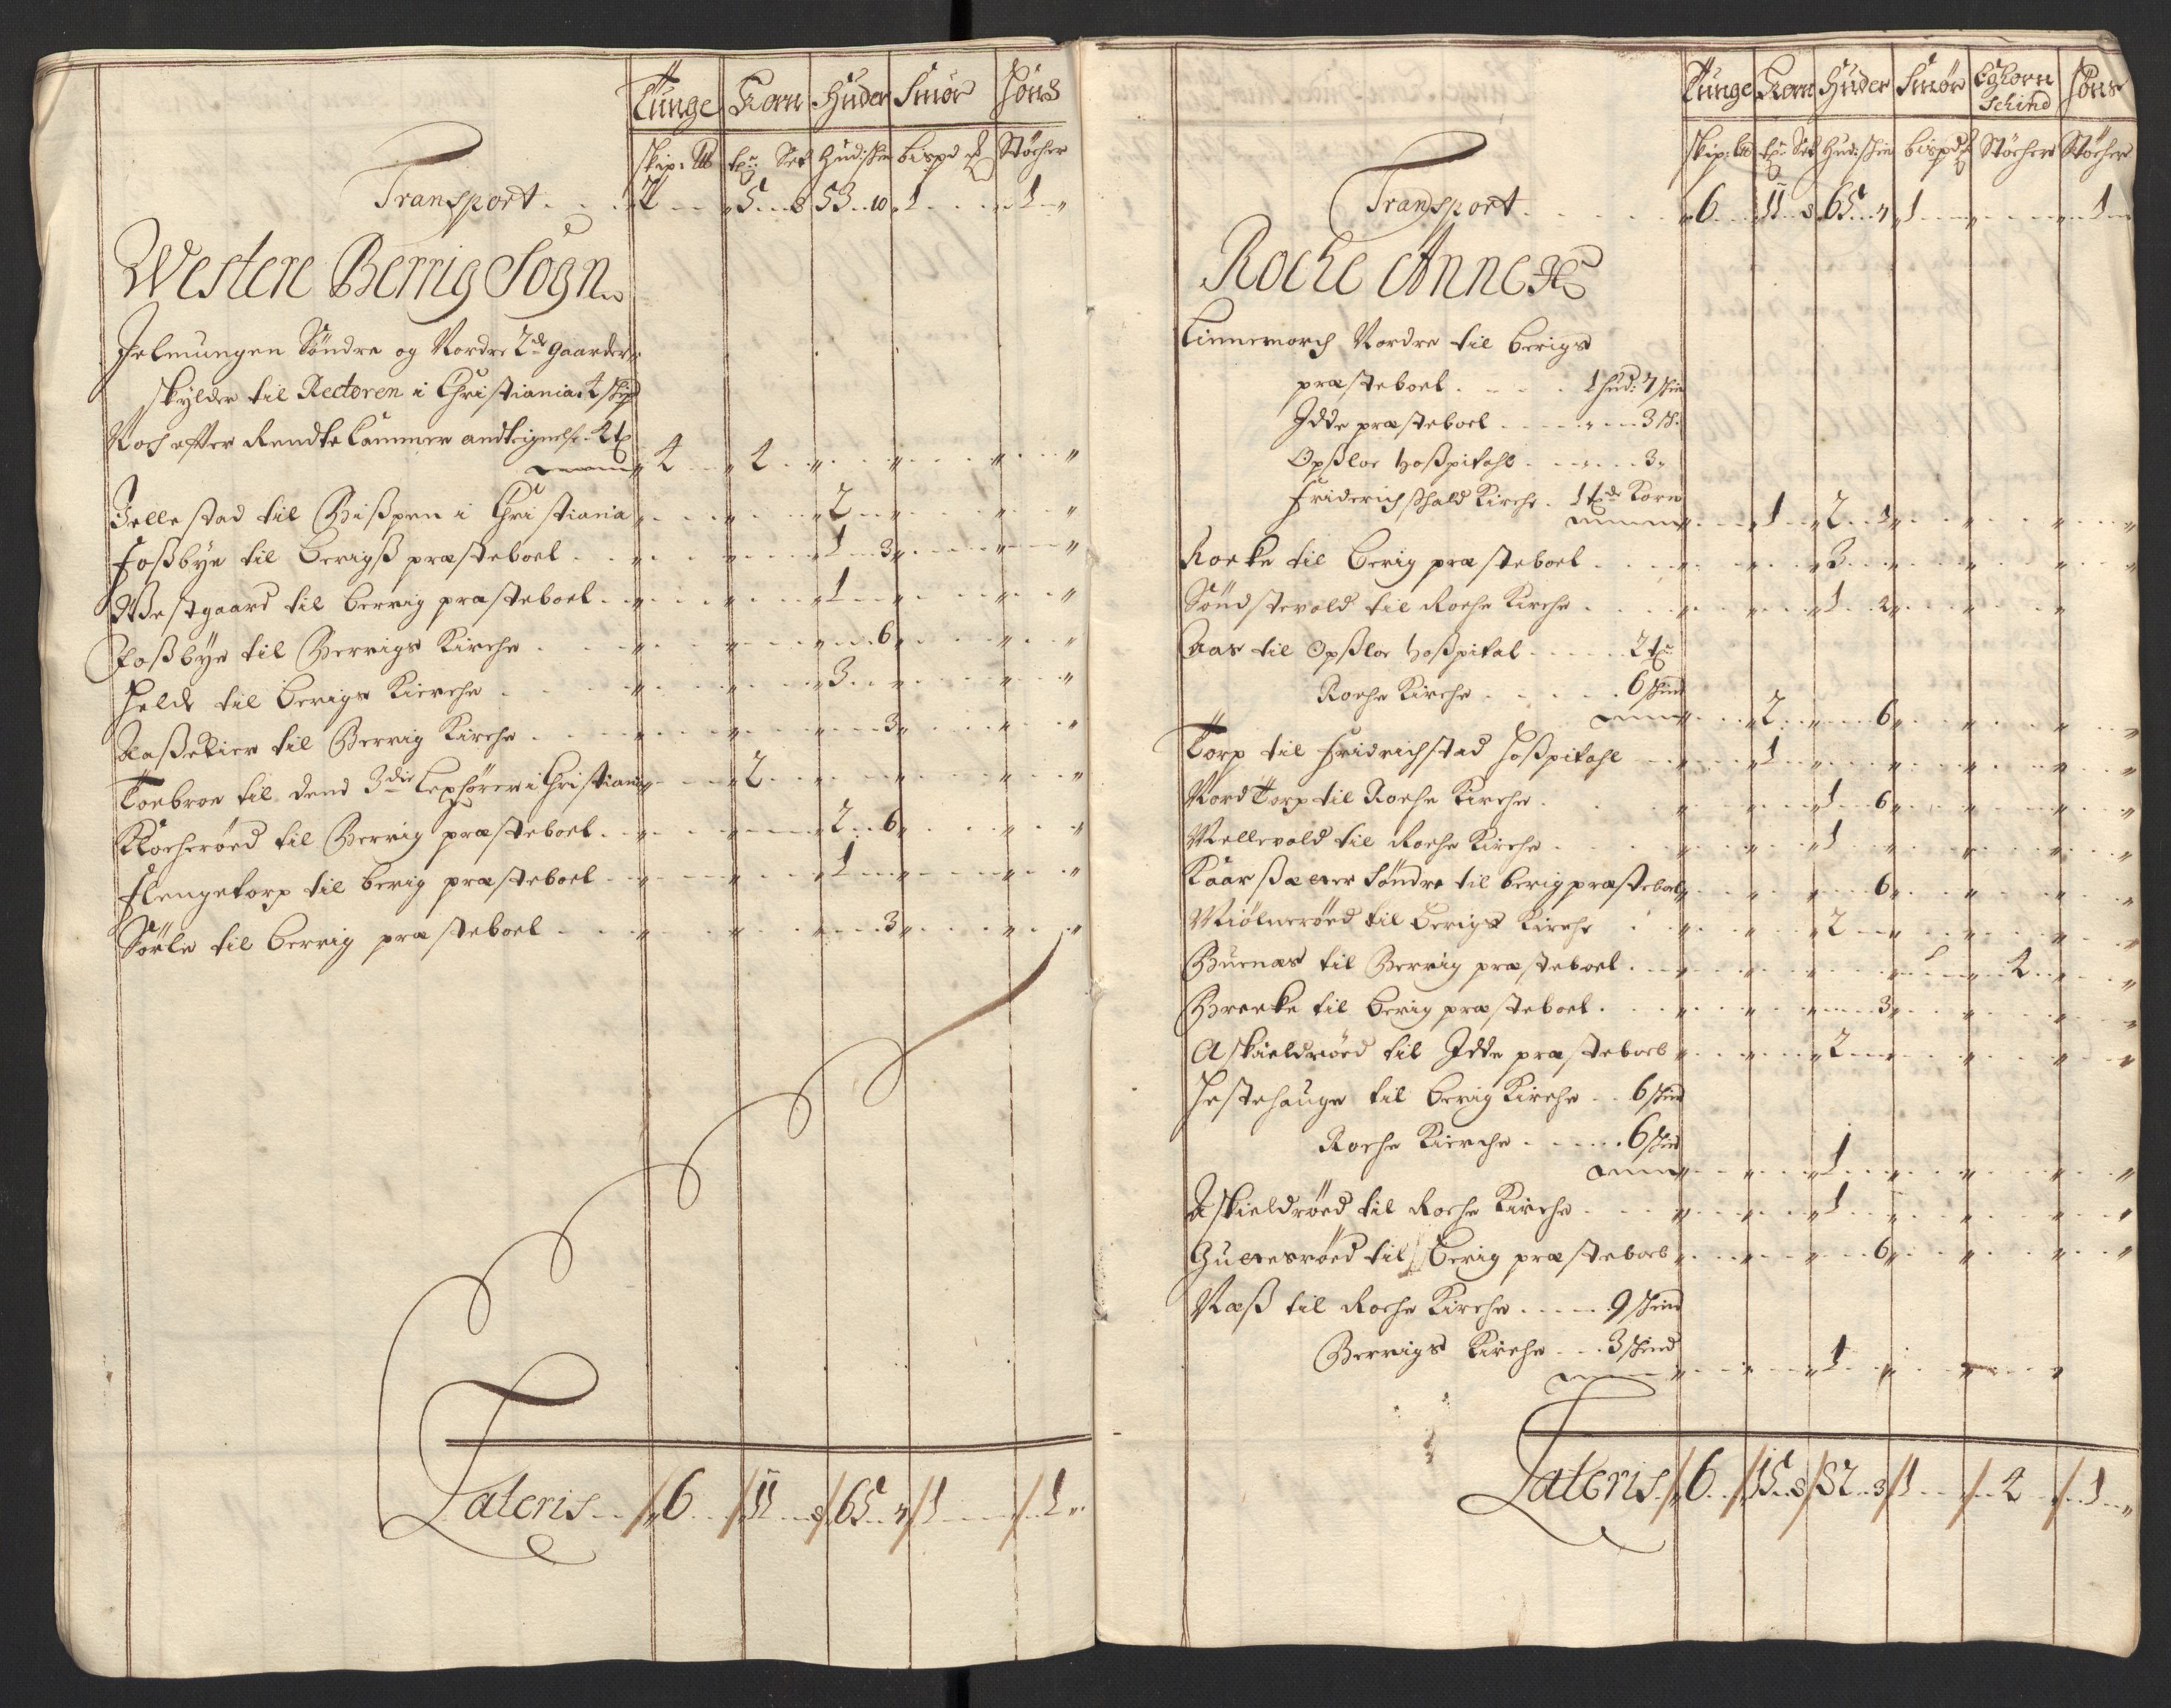 Tunge Korn Huder Smör Höns
Skip: Lb tr Set Hud: skin bispd Stöcher
Transport . . . 2 . . 5 . . 8 53 . . 10 1 . . . 1
Westere Berrig Sogn
Jelmungen Söndre og Nordre 2de gaarder
skylder til Rectoren i Christiania 4 skpd
Noch efter Rendte Cammer andteignelse 4 tr
4 4
Jellestad til Bispen i Christiania 2
Foßbye til Berigß præsteboel . . 1 . . 3
Westgaard til Berrig præsteboel . . 1
Foßbye til Berrigs Kirche . . 6
Helde til Berigs Kierche . . 3
Aaßekier til Berrig Kirche . . 3
Torbroe til dend 3die Lexhörer i Christiania 2
Kocheröed til Berrig præsteboel . . 2 . . 6
Flengetorp til berig præsteboel . . 1
Sörle til berrig præsteboel . . 3
Lateris . . 6 . . 11 . . 8 65 . . 7 1 . . 1
Tunge Korn Huder Smör Eghorn Schind Höns
Skip: Lb tr Set Hud: skin bispd Stöcher Stöcher
Transport . . . 6 . . 11 . . 8 65 . . 7 1 . . . 1
Roche Annex
Linnemorch Nordre til Berigs
præsteboel . . . . 1 hud: 7 skin
Idde præsteboel . . . . 3 sk:
Opßloe Hoßpitahl . . . . 3
Friderichshald Kirche . 1 tr Korn
1 . . 2 . . 1
Roeke til Berig præsteboel . . 3
Söndstevold til Roche Kirche . . 1 . . 2
Aas til Opßloe Hoßpital . . . 2 tr
Roche Kirche . . . . 6 skind
2 . . 6
Torp til Fridrichstad Hoßpitahl . . 1
Nord Torp til Roche Kirche . . 1 . . 6
Mellevold til Roche Kirche . . 1
Kaarßæter Söndre til berig præsteboel 6
Miölneröed til Berigs Kirche . . 2
Buenæs til Berrig præsteboel . . 4
Breeke til Berig præsteboel . . 3
Askieldröed til Idde præsteboel 2
Hestehauge til Berig Kirche . . 6 skind
Roche Kierche . . . . 6 skind
1
Askieldröed til Roche Kirche . . 1
til Berig præsteboel 6
Næß til Roche Kirche . . . . 9 skind
Berrigs Kirche . . . 3 skind
1
Lateris . . 6 . . 15 . . 8 82 . . 3 1 . . 4 . . 1